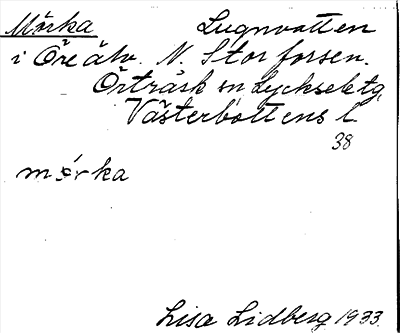 Mörka Lugnvatten
i Öre älv. N. Stor forsen.
Örträsk sn Lycksele tg,
Västerbottens l.
38
mörka
Lisa Lidberg 1933.